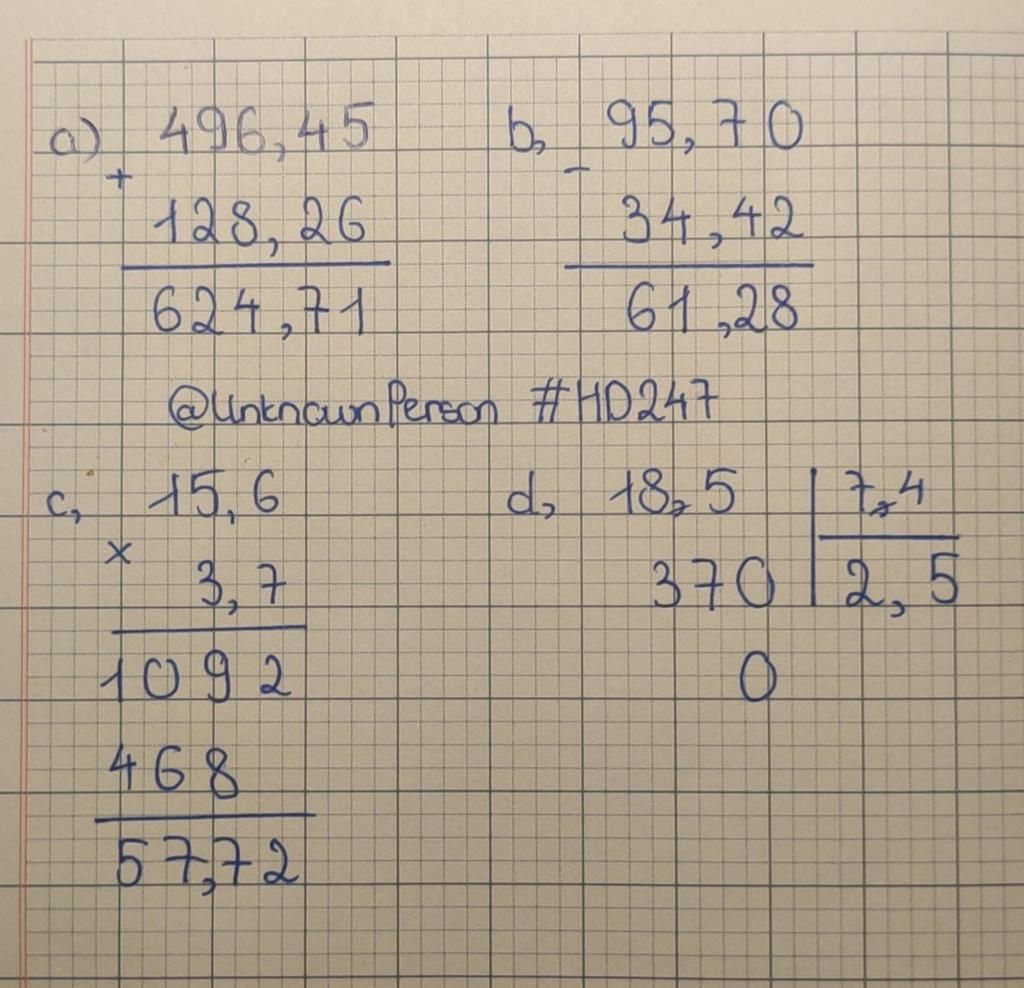 a) 496,45
+
128,26
624,71
b, 95,70
-
34,42
61,28
@UnknownPerson #HD247
c, 15,6
x
3,7
1092
468
57,72
d, 18,5 7,4
370 2,5
0